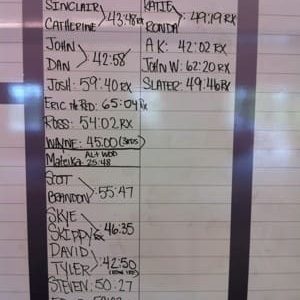 SINCLAIR
CATHERINE 43:48 RX
JOHN
DAN 42:58
JOSH: 59:40 RX
ERIC THE PJD: 65:04 RX
ROSS: 54:02 RX
WAYNE: 45:00 (3RDS)
MATEIKA: ALT WOD 25:48
SCOT
BRANDON 55:47
SKYE
SKIPPY RX 46:35
DAVID
TYLER 42:50
STEVEN: 50:27
KATIE
RONDA 49:19 RX
A.K: 42:02 RX
JOHN W: 62:20 RX
SLATER: 49:46 RX